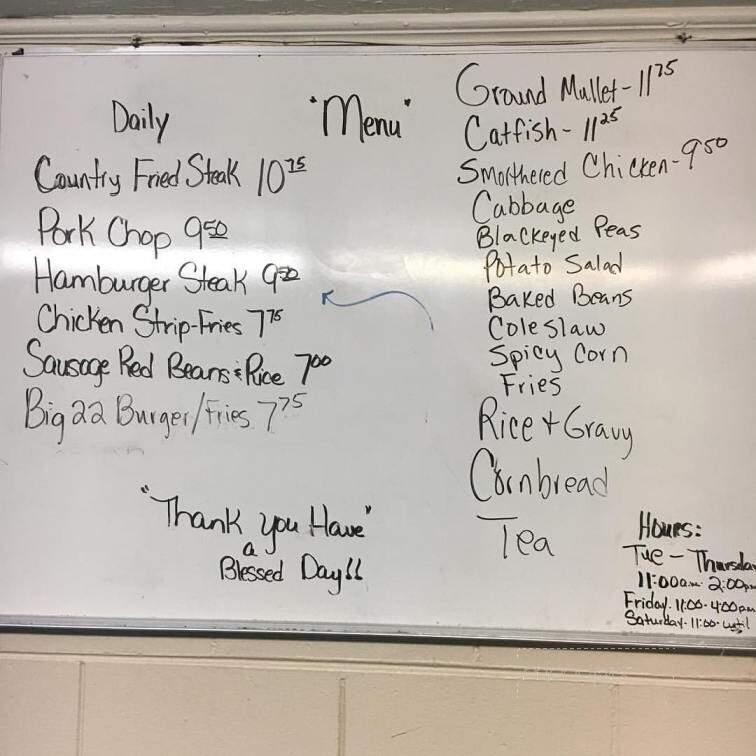 Daily
"Menu"
Country Fried Steak 10 75
Pork Chop 9 50
Hamburger Steak 9 50
Chicken Strip-Fries 7 75
Sausage Red Beans & Rice 7 00
Big 22 Burger/Fries 7 75
"Thank you Have"
a
Blessed Day!!
Ground Mullet - 11 75
Catfish - 11 25
Smorthered Chicken - 9 50
Cabbage
Blackeyed Peas
Potato Salad
Baked Beans
Coleslaw
Spicy Corn
Fries
Rice + Gravy
Cornbread
Tea
Hours:
Tue - Thursday
11:00am - 2:00pm
Friday. 11:00 - 4:00pm
Saturday - 11:00 - until